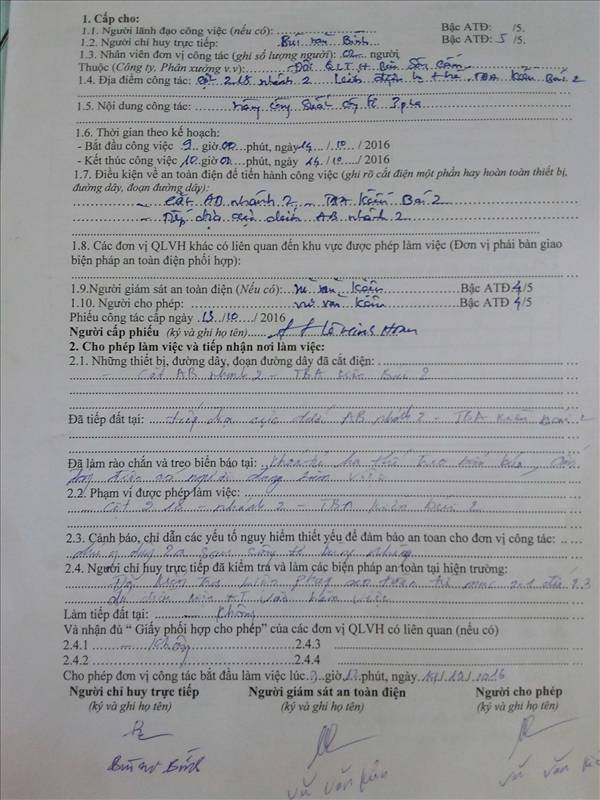 1. Cấp cho:
1.1. Người lãnh đạo công việc (nếu có): Bậc ATĐ: /5.
1.2. Người chỉ huy trực tiếp: Bùi văn Bính Bậc ATĐ: 5 /5.
1.3. Nhân viên đơn vị công tác (ghi số lượng người): 02 người
Thuộc (Công ty, Phân xưởng v.v): Đội QLT
1.4. Địa điểm công tác: cột 2.18 nhánh 2 điện hạ thế TBA Kiến Bái 2
1.5. Nội dung công tác: công suất 3pha
1.6. Thời gian theo kế hoạch:
- Bắt đầu công việc 9 giờ 00 phút, ngày 14 / 10 / 2016
- Kết thúc công việc 10 giờ 00 phút, ngày 14 / 10 / 2016
1.7. Điều kiện về an toàn điện để tiến hành công việc (ghi rõ cắt điện một phần hay hoàn toàn thiết bị,
đường dây, đoạn đường dây):
- Cắt AB nhánh 2 - TBA Kiến Bái 2
- Tiếp địa cực dưới AB nhánh 2
1.8. Các đơn vị QLVH khác có liên quan đến khu vực được phép làm việc (Đơn vị phải bàn giao
biện pháp an toàn điện phối hợp):
1.9.Người giám sát an toàn điện (Nếu có): Vũ văn Kiên Bậc ATĐ 4/5
1.10. Người cho phép: Vũ văn Kiên Bậc ATĐ 4/5
Phiếu công tác cấp ngày 13 /10 / 2016
Người cấp phiếu (ký và ghi họ tên)
2. Cho phép làm việc và tiếp nhận nơi làm việc:
2.1. Những thiết bị, đường dây, đoạn đường dây đã cắt điện:
- Cắt AB nhánh 2 - TBA Kiến Bái 2
Đã tiếp đất tại: tiếp địa cực dưới AB nhánh 2 - TBA Kiến Bái 2
Đã làm rào chắn và treo biển báo tại: treo biển báo
điện có người đang làm việc
2.2. Phạm vi được phép làm việc:
Cột 2.18 - nhánh 2 - TBA Kiến Bái 2
2.3. Cảnh báo, chỉ dẫn các yếu tố nguy hiểm thiết yếu để đảm bảo an toan cho đơn vị công tác:
2.4. Người chỉ huy trực tiếp đã kiểm tra và làm các biện pháp an toàn tại hiện trường:
biện pháp an toàn 2.3
làm việc
Làm tiếp đất tại: - Không
Và nhận đủ “ Giấy phối hợp cho phép” của các đơn vị QLVH có liên quan (nếu có)
2.4.1 - Không 2.4.3
2.4.2 2.4.4
Cho phép đơn vị công tác bắt đầu làm việc lúc giờ phút, ngày 14/10/2016
Người chỉ huy trực tiếp Người giám sát an toàn điện Người cho phép
(ký và ghi họ tên) (ký và ghi họ tên) (ký và ghi họ tên)
Bùi Bính Vũ Văn Kiên Vũ Văn Kiên